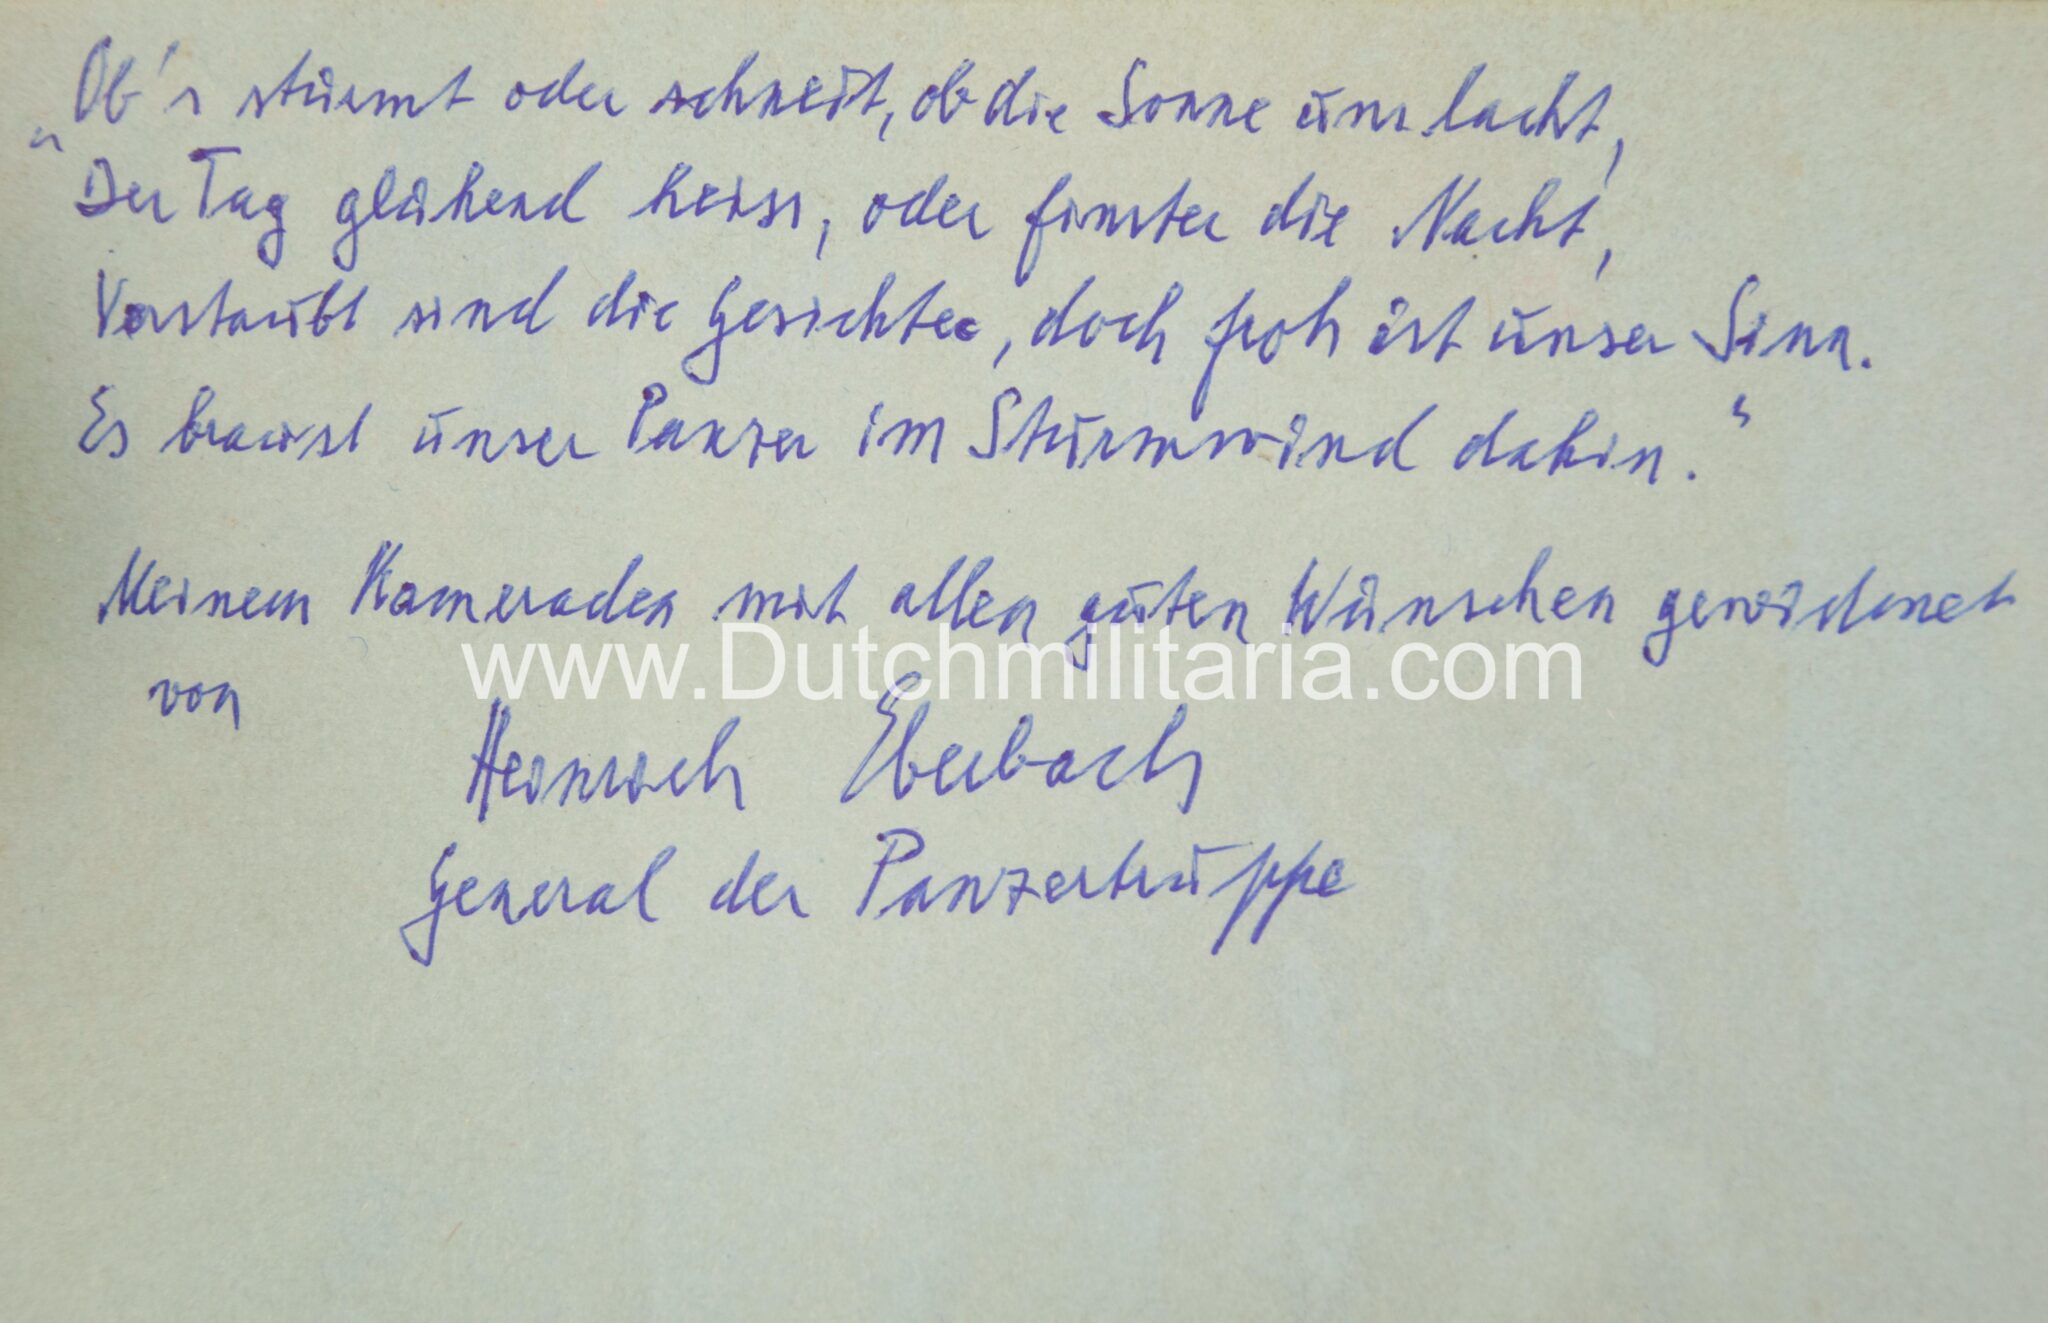 „Ob's stürmt oder schneit, ob die Sonne uns lacht,
Der Tag glühend heiss, oder finster die Nacht,
Verstaubt sind die Gesichter, doch froh ist unser Sinn.
Es braust unser Panzer im Sturmwind dahin.“
Meinem Kameraden mit allen guten Wünschen gewidmet
www.Dutchmilitaria.com
von
Heinrich Eberbach
General der Panzertruppe